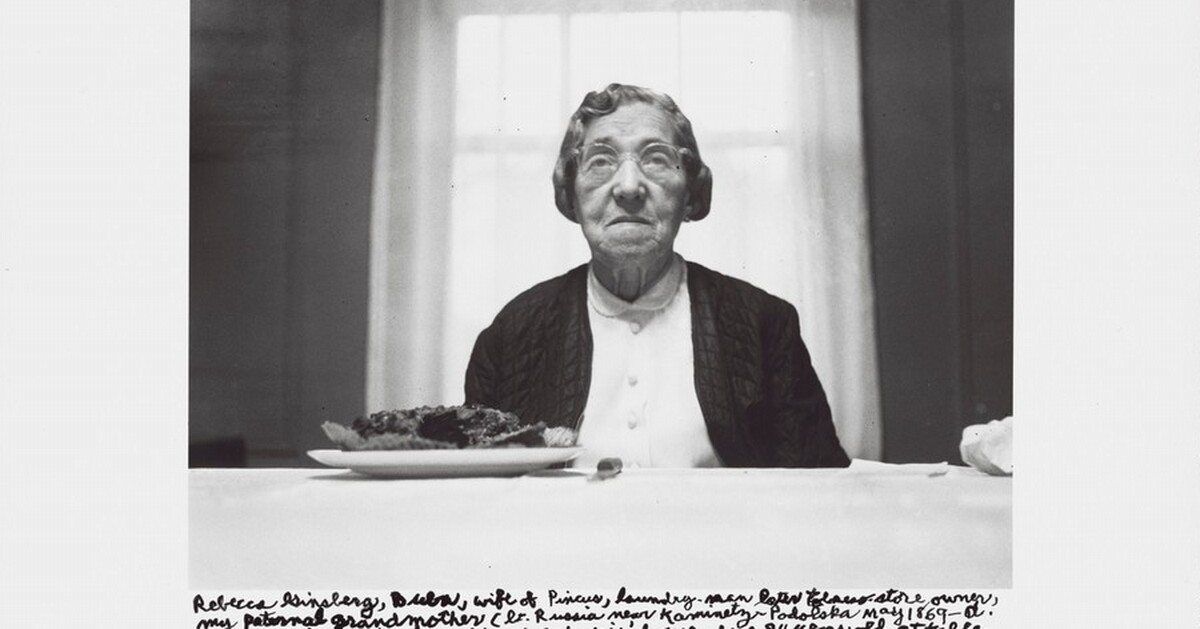 Rebecca Ginsberg, Buba, wife of Pincus, laundry-man later tobacco-store owner,
my paternal grandmother (b. Russia near Kaminetz-Podolska May 1869—d.